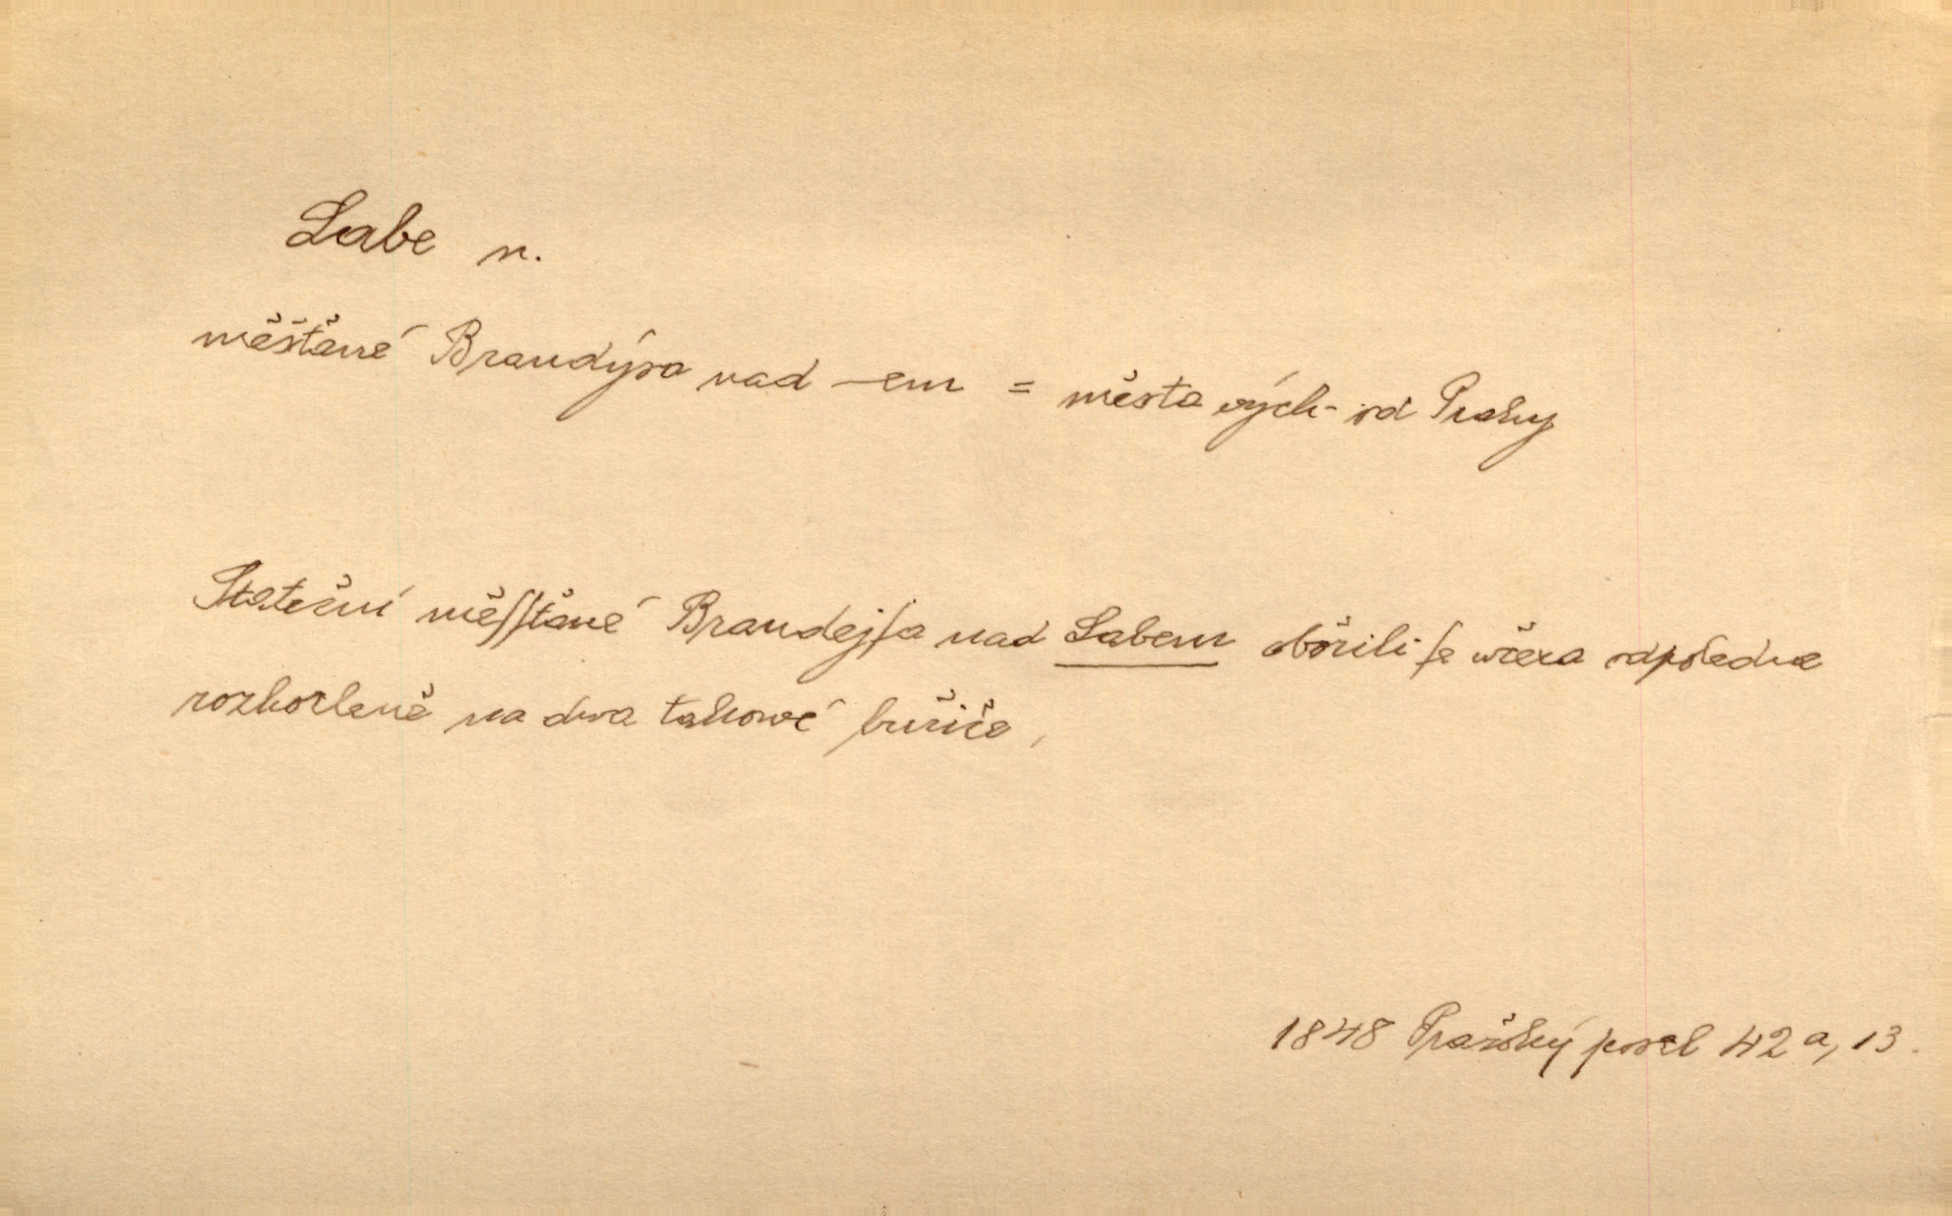 Labe n.
měšťané Brandýsa nad -em = města vých. od Prahy
Statečni měſſťané Brandejſa nad Labem obořili ſe wčera odpoledne
rozhorleně na dwa takowé buřiče,
1848 Pražský posel 42a, 13.